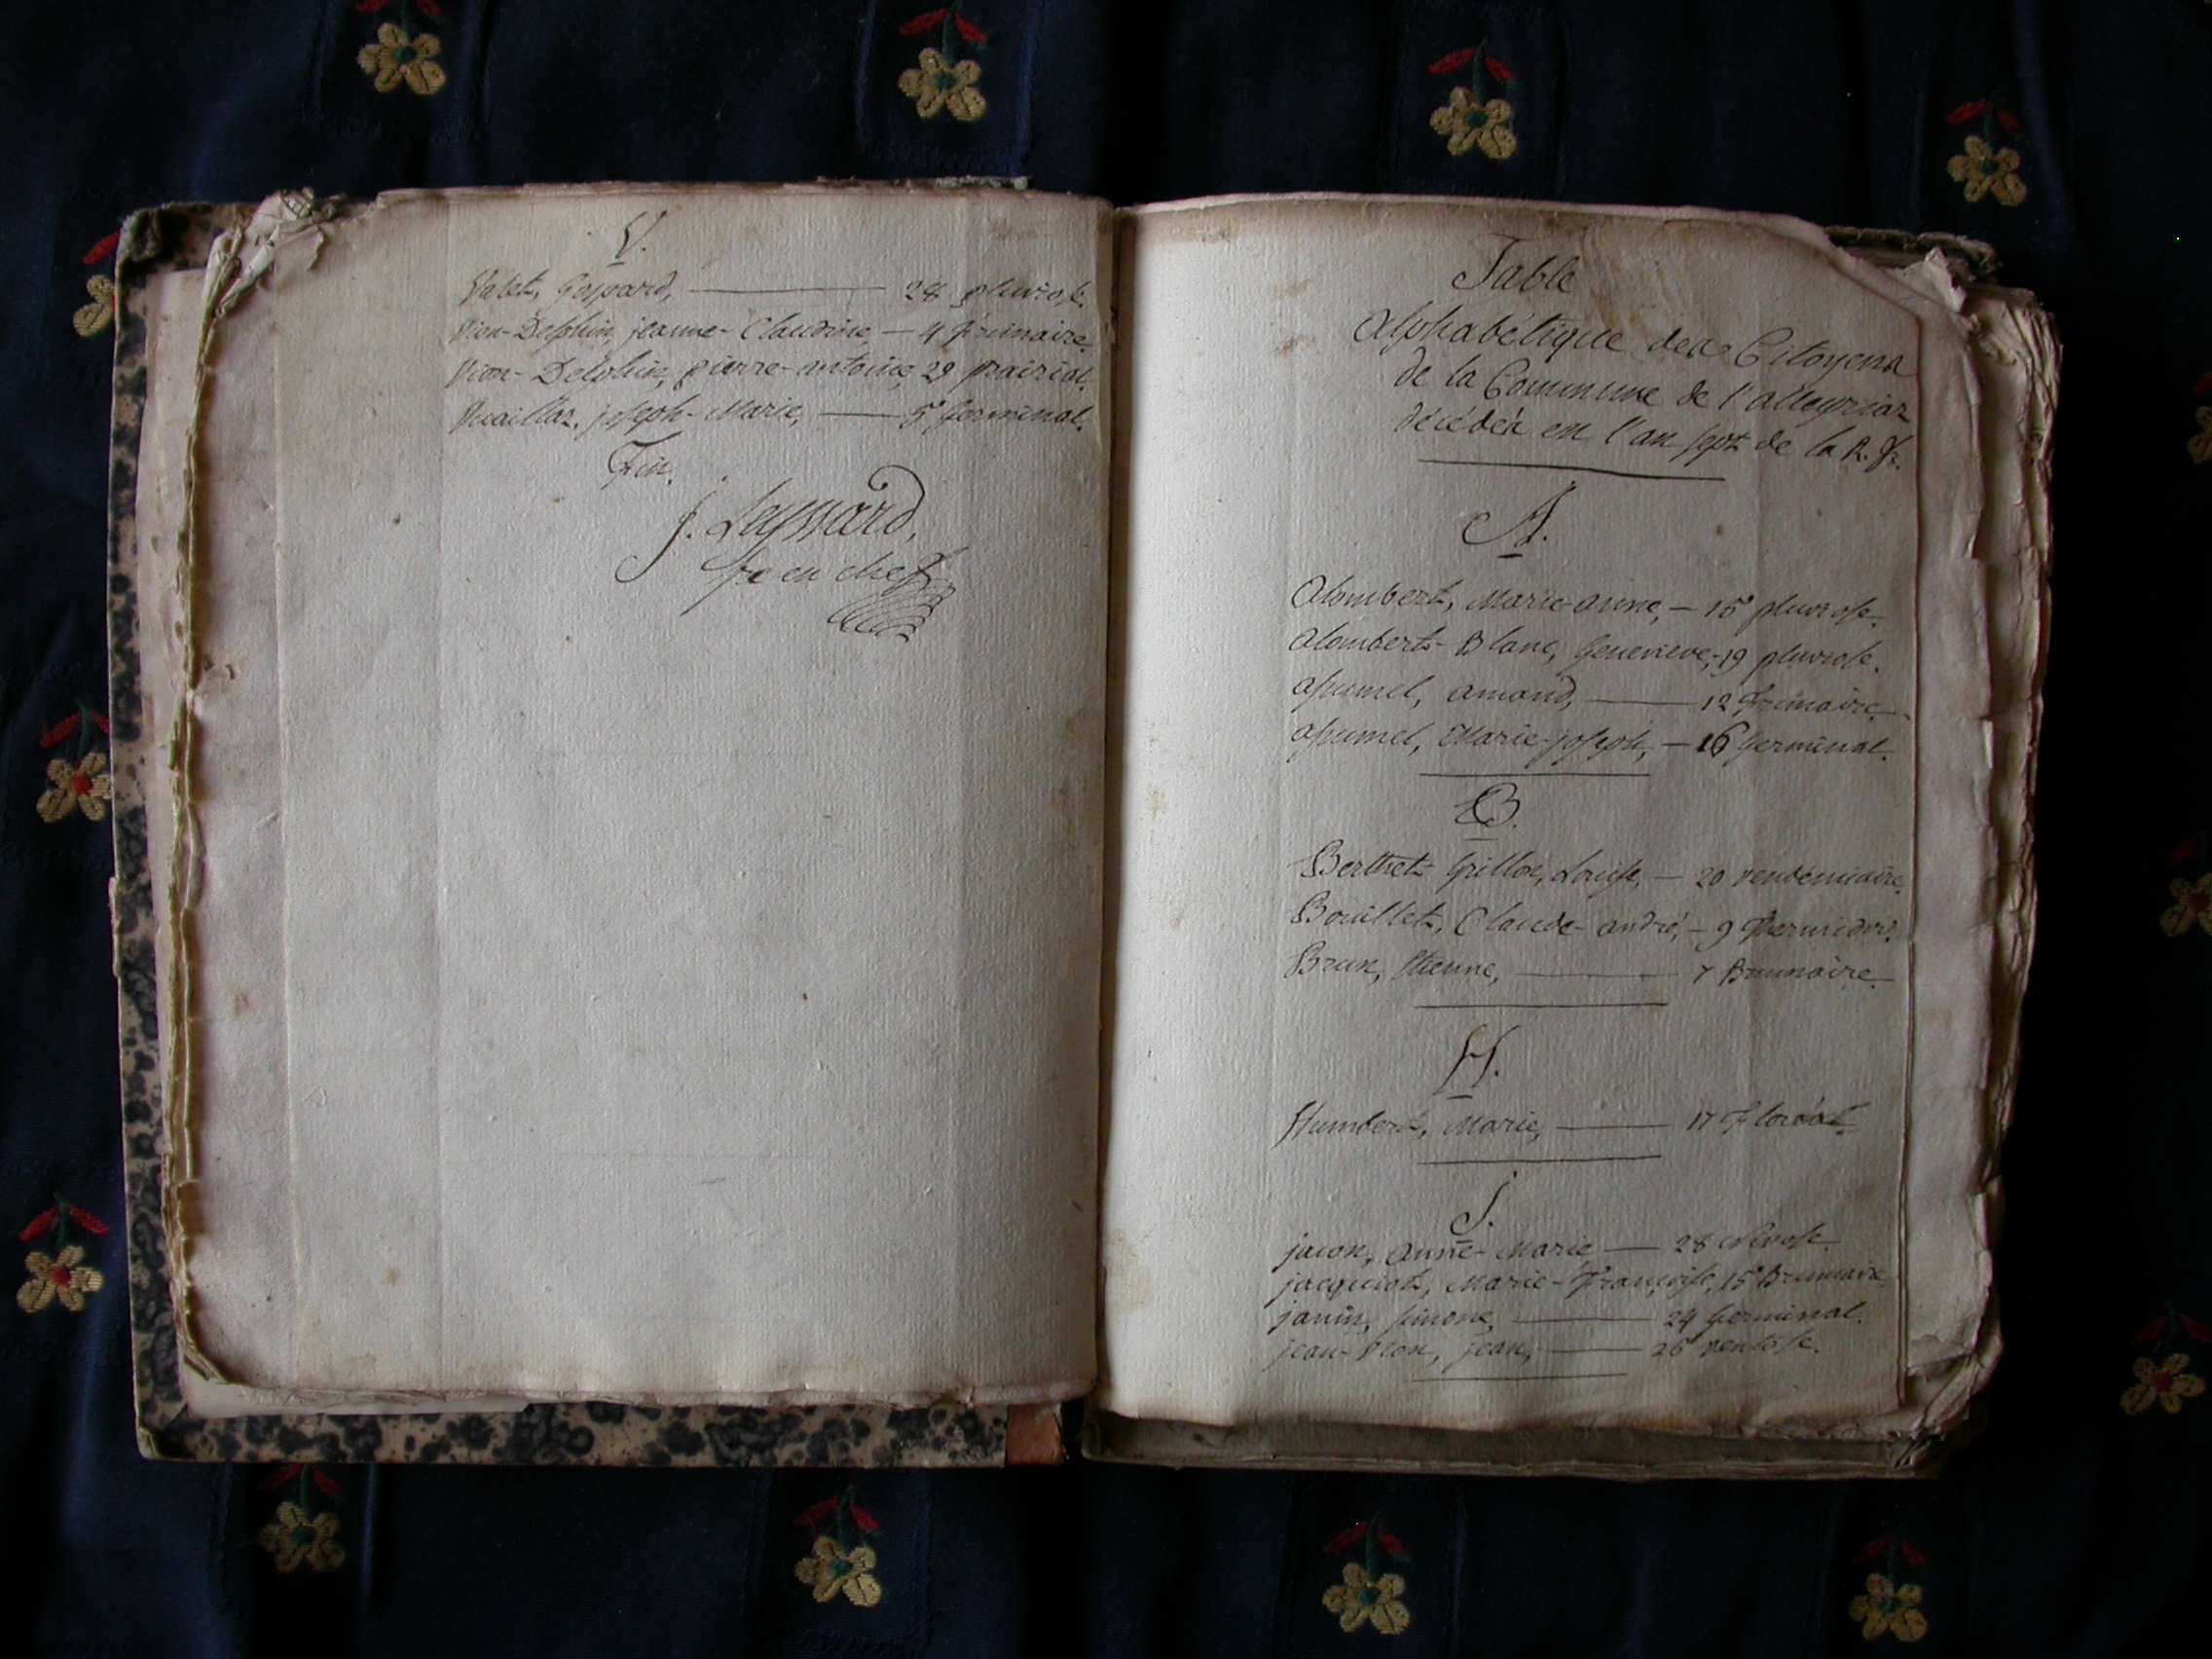 V.
Valet, Gaspard, — 28 pluviose.
Vion-Delphin, jeanne-Claudine, — 4 frimaire.
Vion-Delphin, pierre-antoine, 29 prairial.
Vuaillaz, joseph-Marie, — 5 Germinal.
Fin.
J. Leymard,
en chef
Table
Alphabétique des Citoyens
de la Commune de l'alleyriaz
décédés en l'an sept de la R. F.
A.
Alombert, Marie-anne, — 15 pluviose.
Alombert-Blanc, Genevieve, 19 pluviose.
apumel, amand, — 12 Frimaire.
apumel, Marie-joseph, — 16 Germinal.
B.
Berthet Grillon, Louise, — 20 vendémiaire.
Bouillet, Claude-andré, — 9 Thermidor.
Brun, Etienne, — 7 Brumaire.
H.
Humbert, Marie, — 17 Floréal.
J.
jacon, anne-Marie — 28 Nivose.
jacquiot, Marie-Françoise, 15 Brumaire.
janin, simone, — 24 Germinal.
jean-Vion, jean, — 26 ventose.